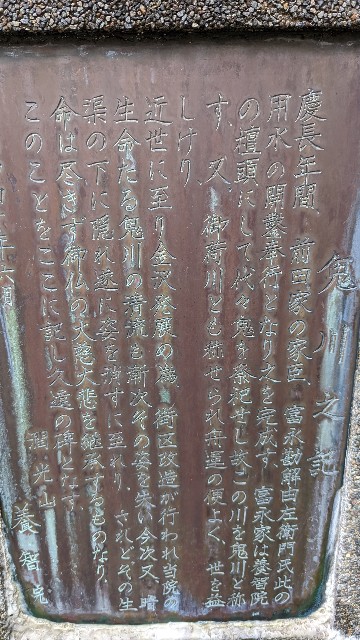 鬼川之記
慶長年間、前田家の家臣、富永勘解由左衛門氏此の
用水の開鑿奉行となり之を完成す、富永家は養智院
の檀頭にして代々鬼を祭祀せし故この川を鬼川と称
す、又、御荷川とも称せられ舟運の便よく、世を益
しけり、
近世に至り金沢発展の為、街区改造が行われ当院の
生命たる鬼川の清流も漸次その姿を失い今次又、暗
渠の下に隠れ遂に姿を消すに至れり、されどその生
命は尽きず御仏の大慈大悲を継承するものなり、
このことをここに記し久遠の碑となす、
潤光山
養智院